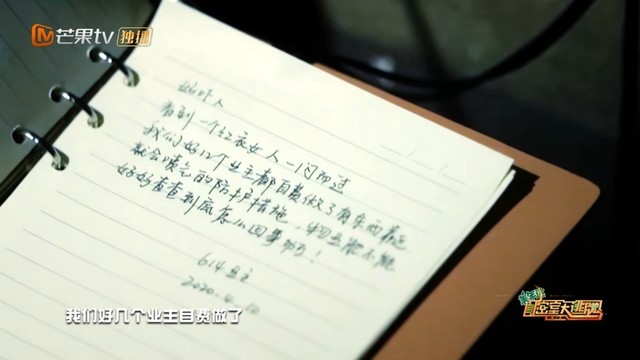 芒果tv 独播
好吓人
看到一个红衣女人一闪而过
我们好几个业主都自费做了有东西靠近
就会喷气的防护措施，物业能不能
好好查查到底怎么回事啊！
614业主
2020.4.10
我们好几个业主自费做了
密室大逃脱